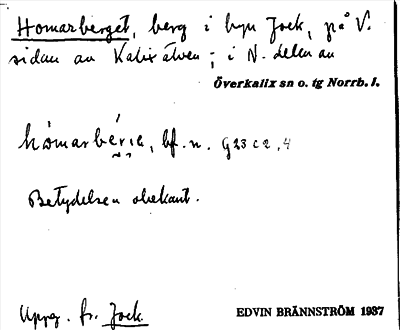 Homarberget, berg i byn Jock, på V.
sidan av Kalix älven; i N. delen av
Överkalix sn o. tg Norrb. l.
bf. n. G 23 c 2, 4
Betydelsen obekant.
Uppg. fr. Jock.
EDVIN BRÄNNSTRÖM 1937